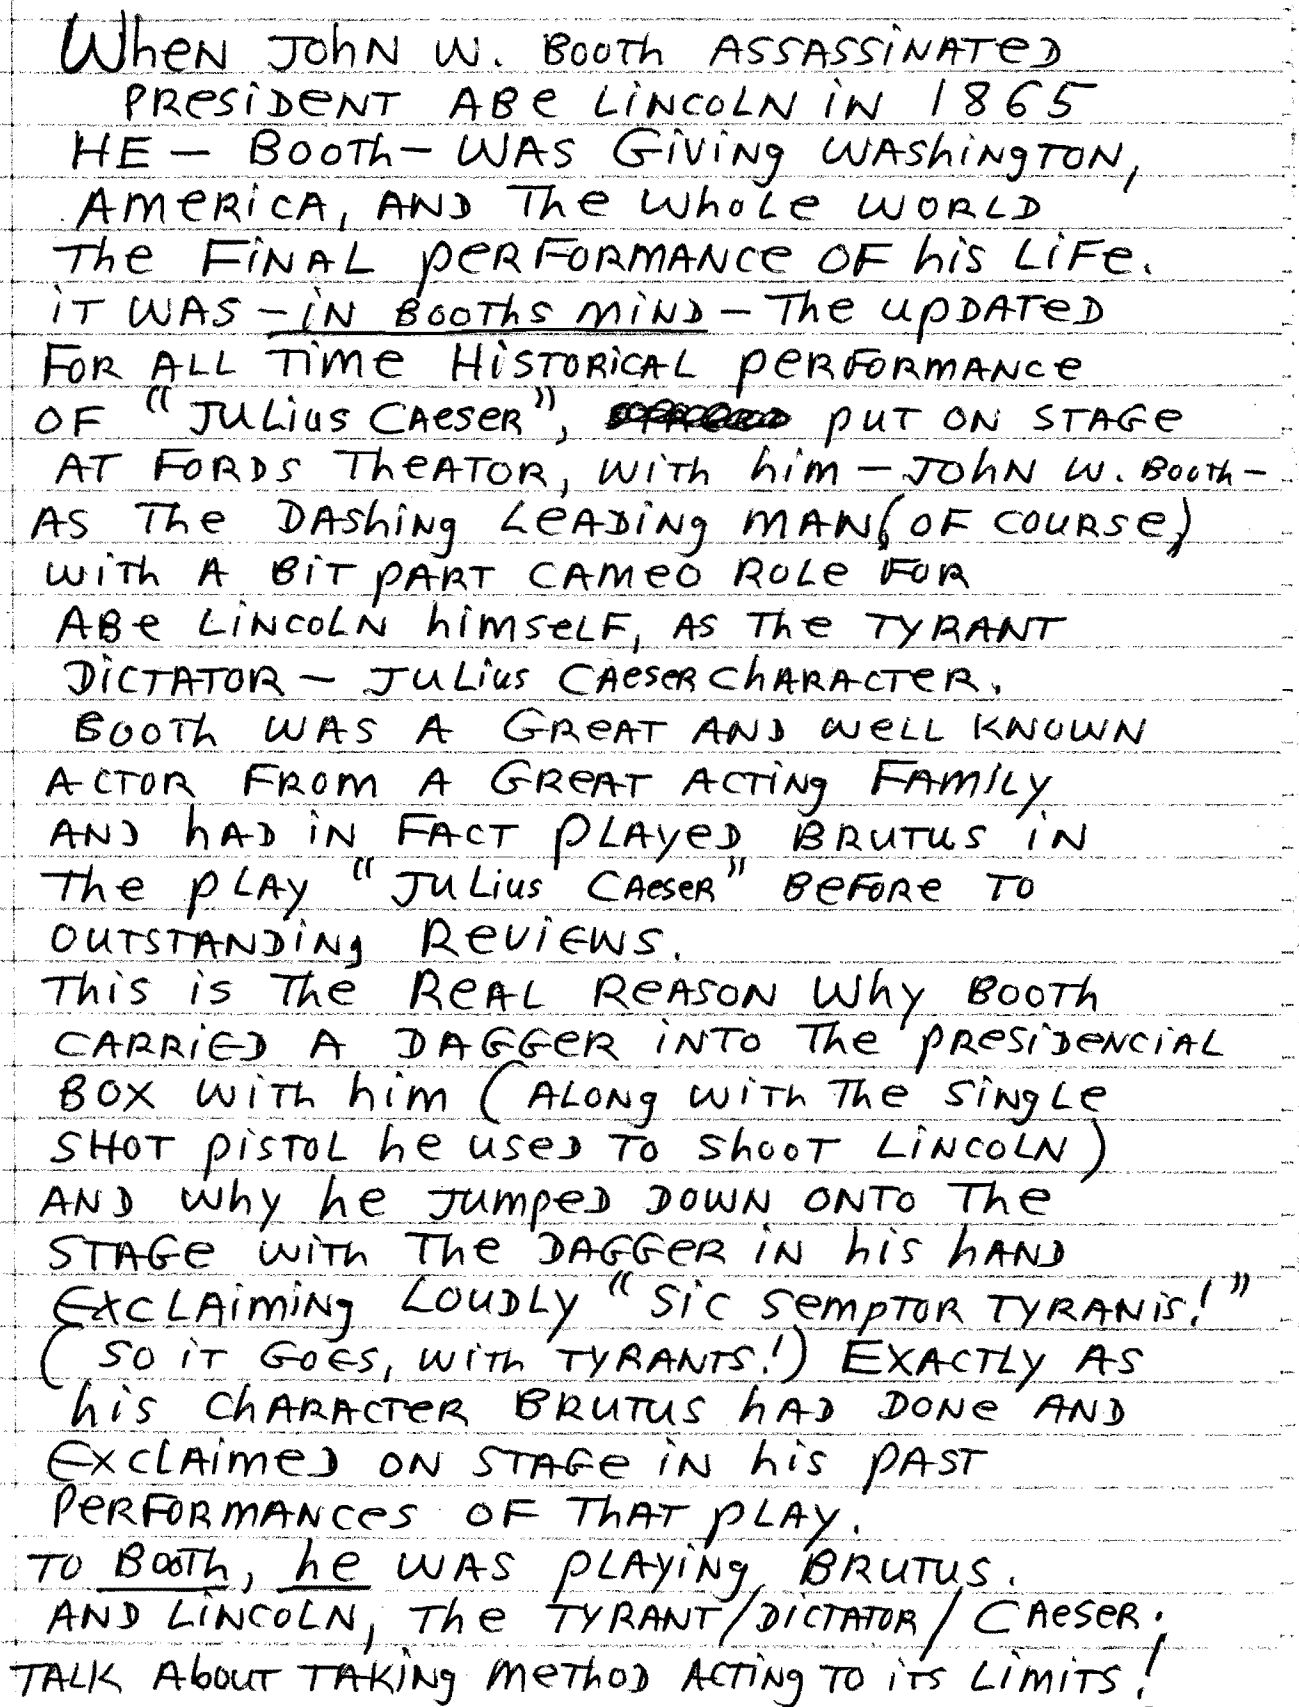 When John W. Booth ASSASSINATED
President Abe Lincoln in 1865
HE – Booth – was Giving Washington,
America, and The Whole World
The Final performance of his Life.
it was – in Booths mind – The updated
For all Time Historical performance
of "Julius Caeser", put on stage
at Fords Theator, with him – John W. Booth –
as The Dashing Leading man (of course,)
with a Bit part cameo Role for
Abe Lincoln himself, as The Tyrant
Dictator – Julius Caeser character.
Booth was a Great and well known
actor from a Great Acting Family
and had in fact played Brutus in
The play "Julius Caeser" Before to
outstanding Reviews.
This is The Real Reason Why Booth
carried a dagger into The presidencial
Box with him (along with The single
shot pistol he used to shoot Lincoln)
and why he jumped down onto The
stage with The dagger in his hand
exclaiming Loudly "Sic Semptor Tyranis!"
(So it Goes, with Tyrants!) Exactly as
his character Brutus had done and
exclaimed on stage in his past
performances of That play.
To Booth, he was playing Brutus.
And Lincoln, The Tyrant/Dictator/Caeser.
Talk About Taking Method Acting To its Limits!